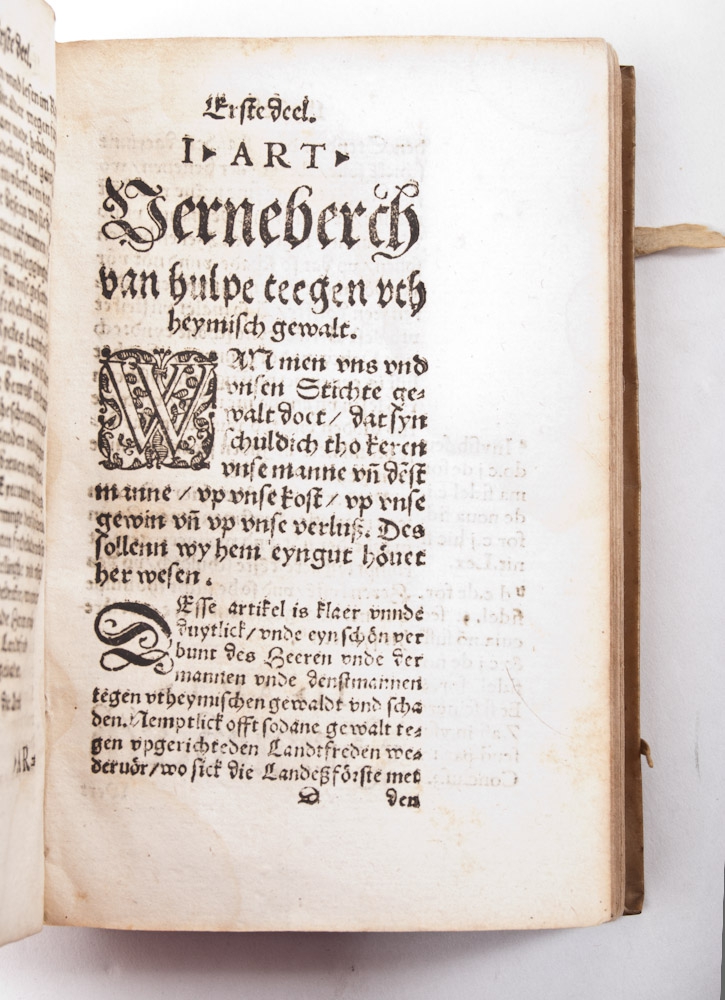 Erste deel.
I ART
Verneberch
van hulpe teegen vth
heymisch gewalt.
WAN men vns vnd
vnsen Stichte ge-
walt doet / dat syn
schuldich tho keren
vnse manne vñ dẽst
manne / vp vnse kost / vp vnse
gewin vñ vp vnse verluß. Des
sollenn wy hem eyn gut höuet
her wesen.
DEsse artikel is klaer vnnde
duytlick / vnde eyn schön ver
bunt des Heeren vnde der
mannen vnde denstmannen
tegen vtheymischen gewaldt vnd scha
den. Nemptlick offt sodane gewalt te-
gen vpgerichteden Landtfreden we-
deruör / wo sick die Landeßförste met
D den